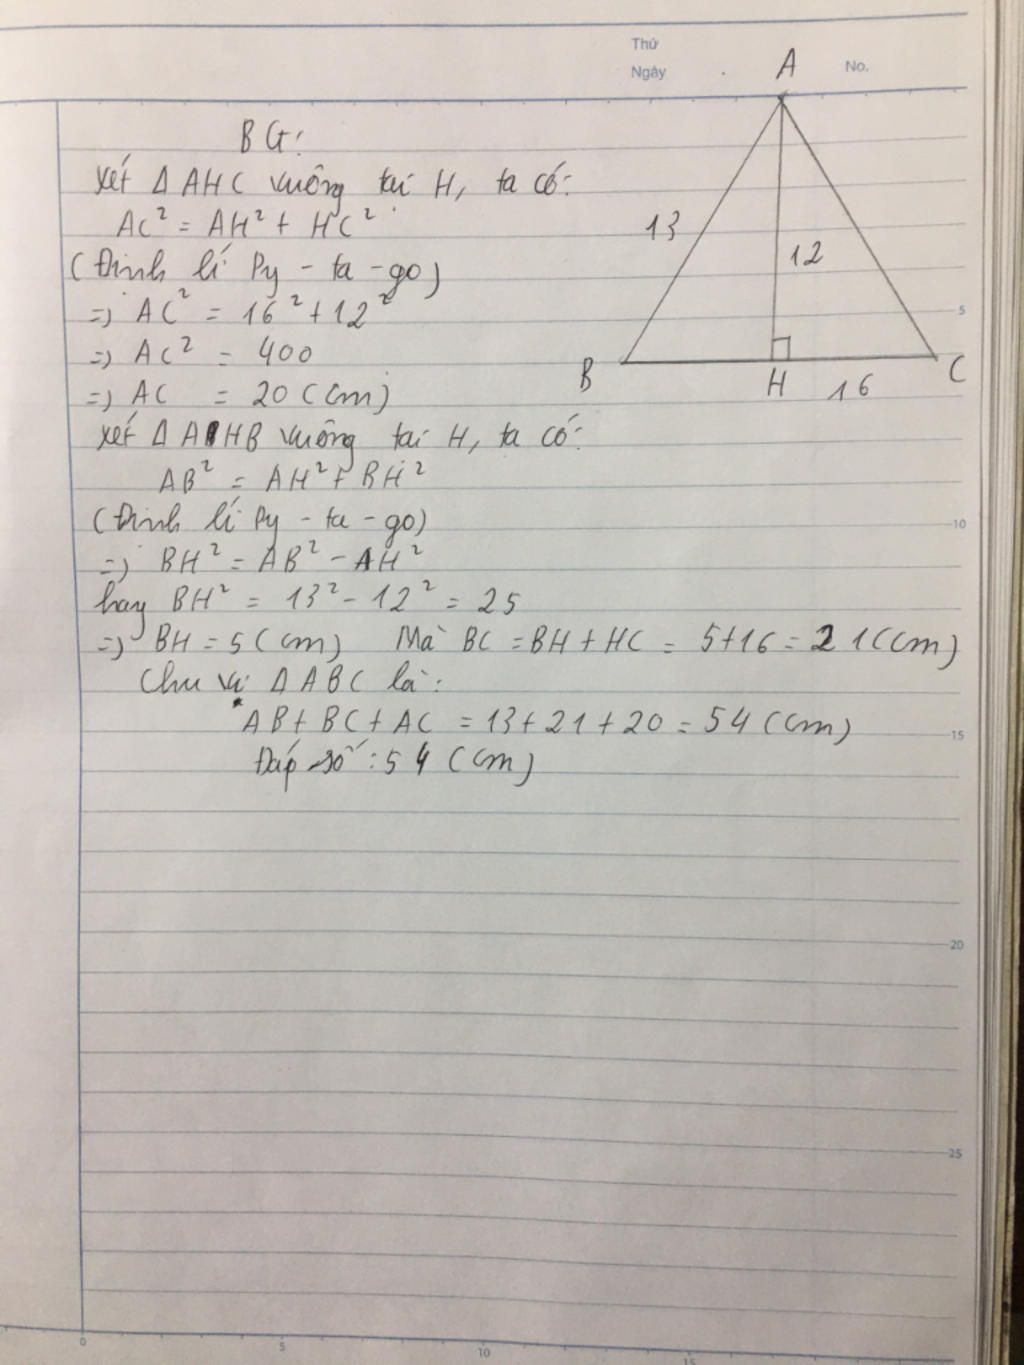 Thứ
Ngày
No.
A
BG:
Xét Δ AHC vuông tại H, ta có:
AC² = AH² + HC²
(Định lí Py - ta - go)
=> AC² = 16² + 12²
=> AC² = 400
=> AC = 20 (cm)
Xét Δ AHB vuông tại H, ta có:
AB² = AH² + BH²
(Định lí Py - ta - go)
=> BH² = AB² - AH²
hay BH² = 13² - 12² = 25
=> BH = 5 (cm) Mà BC = BH + HC = 5+16 = 21 (cm)
Chu vi Δ ABC là:
AB + BC + AC = 13 + 21 + 20 = 54 (cm)
Đáp số: 54 (cm)
13
12
B
H
16
C
5
10
15
20
25
0
5
10
15